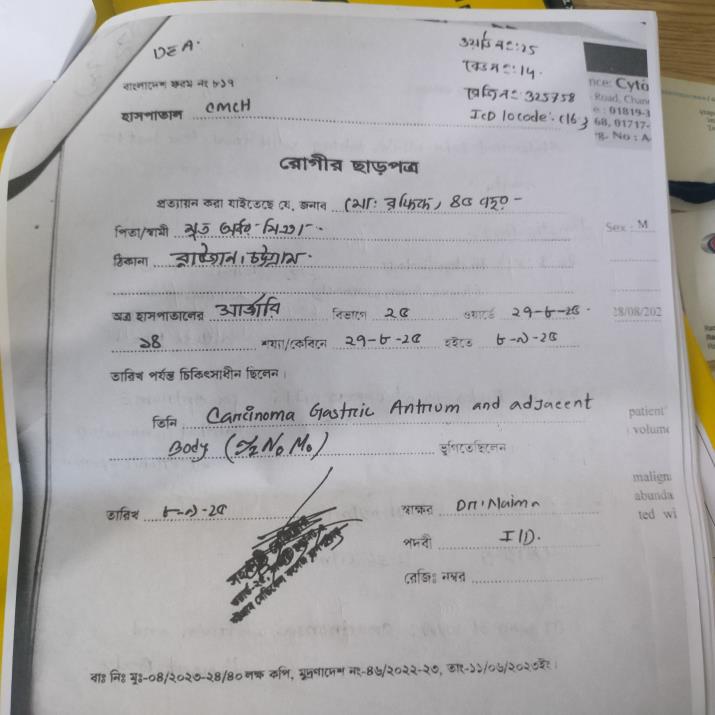 DEA.
ওয়ার্ড নং: 25
বেড নং: 14.
বাংলাদেশ ফরম নং ৮১৭
রেজি নং: 325758
হাসপাতাল CMCH
ICD 10 code: C16
রোগীর ছাড়পত্র
প্রত্যয়ন করা যাইতেছে যে, জনাব মো: রফিক, ৪৫
পিতা/স্বামী মৃত
ঠিকানা রাউজান, চট্টগ্রাম
অত্র হাসপাতালের সার্জারি বিভাগে ২৫ ওয়ার্ডে ২৭-৮-২৫
১৪ শয্যা/কেবিনে ২৭-৮-২৫ হইতে ৮-৯-২৫
তারিখ পর্যন্ত চিকিৎসাধীন ছিলেন।
তিনি Carcinoma Gastric Antrum and adjacent
Body N0 M0) ভুগিতেছিলেন
তারিখ ৮-৯-২৫
স্বাক্ষর Dr. Naima
পদবী
রেজিঃ নম্বর
বাঃ নিঃ মুঃ-০৪/২০২৩-২৪/৪০ লক্ষ কপি, মুদ্রণাদেশ নং-৪৬/২০২২-২৩, তাং-১১/০৬/২০২৩ইং।
nce: Cyto
Road, Chan
: 01819-3
68, 01717-
g. No : A
Sex : M
28/08/202
patient'
volume
malign
abunda
ted wi